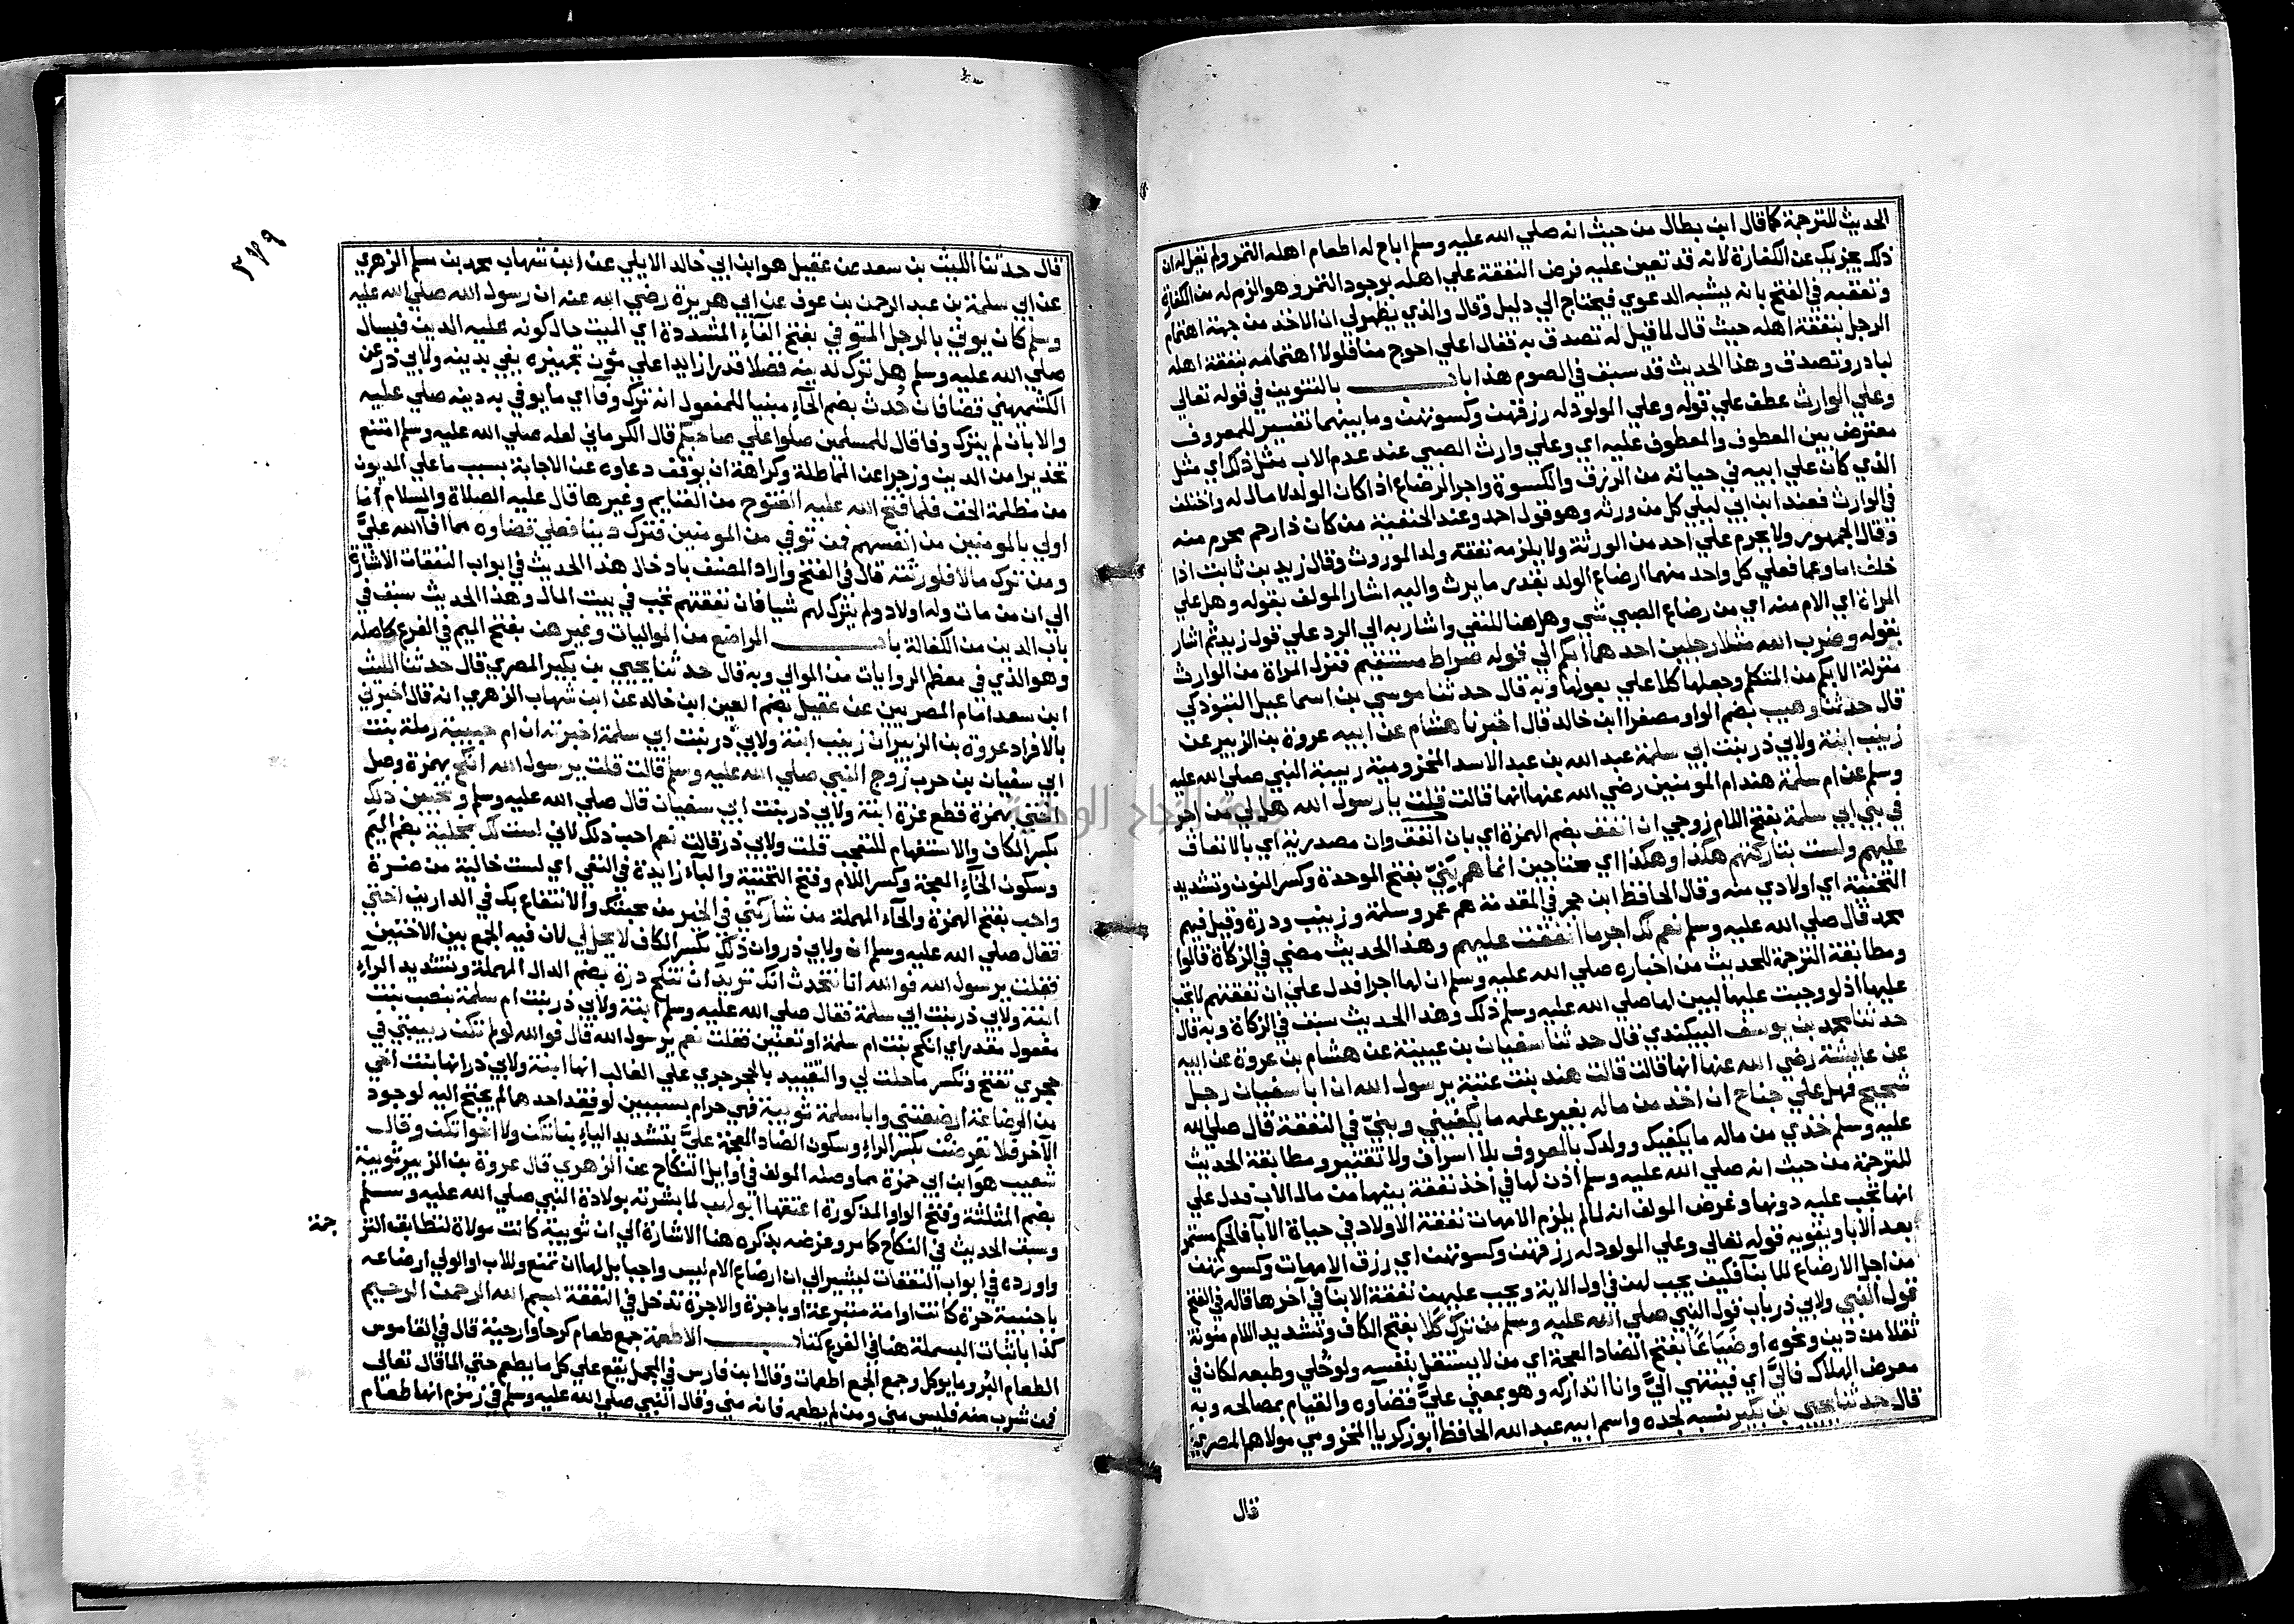 الحديث للترجمة كما قال ابن بطال من حيث انه صلي الله عليه وسلم اباح له اطعام اهله التمر ولم يقل له ان
ذلك يجزيك عن الكفارة لانه قد تعين عليه فرض النفقة علي اهله بوجود التمر وهو الزم له من الكفارة
وتعقبه في الفتح بانه يشبه الدعوي فيحتاج الي دليل وقال والذي يظهر لي ان الاخذ من جهة اهتمام
الرجل بنفقة اهله حيث قال لما قيل له تصدق به فقال اعلي احوج منا فلولا اهتمامه بنفقة اهله
لبادر وتصدق وهذا الحديث قد سبق في الصوم هذا باب بالتنوين في قوله تعالي
وعلي الوارث عطف علي قوله وعلي المولود له رزقهن وكسوتهن وما بينهما تفسير للمعروف
معترض بين المعطوف والمعطوف عليه اي وعلي وارث الصبي عند عدم الاب مثل ذلك اي مثل
الذي كان علي ابيه في حياته من الرزق والكسوة واجر الرضاع اذا كان الولد لا مال له واختلف
في الوارث فعند ابن ابي ليلي كل من ورثه وهو قول احد وعند الحنفية من كان ذا رحم محرم منه
وقال الجمهور ولا يحرم علي احد من الورثة ولا يلزمه نفقة ولد الموروث وقال زيد بن ثابت اذا
خلف اما وعما فعلي كل واحد منهما ارضاع الولد بقدر ما يرث واليه اشار المولف بقوله وهل علي
المراة اي الام منه اي من رضاع الصبي شي وهل هنا للنفي واشار به الي الرد علي قول زيد ثم اشار
بقوله وضرب الله مثلا رجلين احدهما ابكم الي قوله صراط مستقيم فنزل المراة من الوارث
منزلة الابكم من المتكلم وجعلها كلا علي يعولها وبه قال حدثنا موسي بن اسماعيل التبوذكي
قال حدثنا وهيب بضم الواو مصغرا ابن خالد قال اخبرنا هشام عن ابيه عروة بن الزبير عن
زينب ابنة ولابي ذر بنت ابي سلمة عبد الله بن عبد الاسد المخزومية ربيبة النبي صلي الله عليه
وسلم عن ام سلمة هند ام المومنين رضي الله عنها انها قالت قلت يا رسول الله هل لي من اجر
في بني ابي سلمة بفتح اللام زوجي ان انفق بضم الهمزة اي بان انفق وان مصدرية اي بالانفاق
عليهم ولست بتاركتهم هكذا وهكذا اي محتاجين انما هم بَنِيّ بفتح الموحدة وكسر النون وتشديد
التحتية اي اولادي منه وقال الحافظ ابن حجر في المقدمة هم عمر وسلمة وزينب ودرة وقيل فيهم
محمد قال صلي الله عليه وسلم نعم لك اجر ما انفقت عليهم وهذا الحديث مضي في الزكاة قالوا
ومطابقة الترجمة للحديث من اخباره صلي الله عليه وسلم ان لها اجرا فدل علي ان نفقتهم لا تجب
عليها اذ لو وجبت عليها لبين لها صلي الله عليه وسلم ذلك وهذا الحديث سبق في الزكاة وبه قال
حدثنا محمد بن يوسف البيكندي قال حدثنا سفيان بن عيينة عن هشام بن عروة عن ابيه
عن عايشة رضي الله عنها انها قالت قالت هند بنت عتبة يرسول الله ان ابا سفيان رجل
شحيح فهل علي جناح ان اخذ من ماله بغير علمه ما يكفيني وبنيّ في النفقة قال صلي الله
عليه وسلم خذي من ماله ما يكفيك وولدك بالمعروف بلا اسراف ولا تقتير ومطابقة الحديث
للترجمة من حيث انه صلي الله عليه وسلم اذن لها في اخذ نفقة بنيها من مال الاب فدل علي
انها تجب عليه دونها وغرض المولف انه لما لم يلزم الامهات نفقة الاولاد في حياة الابآ فالحكم مستمر
بعد الابا ويقويه قوله تعالي وعلي المولود له رزقهن وكسوتهن اي رزق الامهات وكسوتهن
من اجل الارضاع للابنآ فكيف يجب لهن في اول الاية ويجب عليهن نفقة الابنآ في آخرها قاله في الفتح
قول النبي ولابي ذر باب قول النبي صلي الله عليه وسلم من ترك كَلا بفتح الكاف وتشديد اللام منونة
ثقلا من دين ونحوه او ضَيَاعًا بفتح الضاد المعجمة اي من لا يستقل بنفسه ولو خُلي وطبعه لكان في
معرض الهلاك فاليَّ اي فينتهي اليَّ وانا اتداركه وهو بمعني عليَّ قضآوه والقيام بمصالحه وبه
قال حدثنا يحيي بن بكير نسبه لجده واسم ابيه عبد الله الحافظ ابو زكريا المخزومي مولاهم المصري
قال
٣٧٩
قال حدثنا الليث بن سعد عن عقيل هو ابن ابي خالد الايلي عن ابن شهاب محمد بن مسلم الزهري
عن ابي سلمة بن عبد الرحمن بن عوف عن ابي هريرة رضي الله عنه ان رسول الله صلي الله عليه
وسلم كان يوتي بالرجل المتوفي بفتح الفآء المشددة اي الميت حال كونه عليه الدين فيسال
صلي الله عليه وسلم هل ترك لدينه فضلا قدرا زايدا علي مؤن تجهيزه يفي بدينه ولابي ذر عن
الكشميهني قضا فان حُدث بضم الحآء مبنيا للمفعول انه ترك وفآ اي ما يوفي به دينه صلي عليه
والا بان لم يترك وفا قال للمسلمين صلوا علي صاحبكم قال الكرماني لعله صلي الله عليه وسلم امتنع
تحذيرا من الدين وزجرا عن المماطلة وكراهة ان يوقف دعاوه عن الاجابة بسبب ما علي المديون
من مظلمة الحق فلما فتح الله عليه الفتوح من الغنايم وغيرها قال عليه الصلاة والسلام انا
اولي بالمومنين من انفسهم فمن توفي من المومنين فترك دينا فعلي قضاوه مما افآ الله عليَّ
ومن ترك مالا فلورثته قال في الفتح واراد المصنف بادخال هذا الحديث في ابواب النفقات الاشارة
الي ان من مات وله اولاد ولم يترك لهم شيا فان نفقتهم تجب في بيت المال وهذا الحديث سبق في
باب الدين من الكفالة باب المراضع من المواليات وغيرهن بفتح الميم في الفرع كاصله
وهو الذي في معظم الروايات من الموالي وبه قال حدثنا يحيي بن بكير المصري قال حدثنا الليث
ابن سعد امام المصريين عن عقيل بضم العين ابن خالد عن ابن شهاب الزهري انه قال اخبرني
بالافراد عروة بن الزبير ان زينب ابنة ولابي ذر بنت ابي سلمة اخبرته ان ام حبيبة رملة بنت
ابي سفيان بن حرب زوج النبي صلي الله عليه وسلم قالت قلت يرسول الله انكح بهمزة وصل
اختي بهمزة قطع عزة ابنة ولابي ذر بنت ابي سفيان قال صلي الله عليه وسلم وتحبين ذلك
بكسر الكاف والاستفهام للتعجب قلت ولابي ذر قالت نعم احب ذلك لاني لست لك بمخلية بضم الميم
وسكون الخآء المعجمة وكسر اللام وفتح التحتية والبآء زايدة في النفي اي لست خالية من ضرة
واحب بفتح الهمزة والحآء المهملة من شاركني في الخير من محبتك والانتفاع بك في الدارين اختي
فقال صلي الله عليه وسلم ان ولابي ذر وان ذلك بكسر الكاف لا يحل لي لان فيه الجمع بين الاختين
فقلت يرسول الله فوالله انا نتحدث انك تريد ان تنكح درة بضم الدال المهملة وتشديد الرآء
ابنة ولابي ذر بنت ابي سلمة فقال صلي الله عليه وسلم ابنة ولابي ذر بنت ام سلمة بنصب بنت
مفعول مقدر اي انكح بنت ام سلمة او تعنين فقلت نعم يرسول الله قال فوالله لو لم تكن ربيبتي في
حجري تفتح وتكسر ما حلت لي والتقييد بالحجر جري علي الغالب انها ابنة ولابي ذر انها بنت اخي
من الرضاعة ارضعتني وابا سلمة ثويبة فهي حرام بسببين لو فقد احدهما لم يحتج اليه لوجود
الآخر فلا تعرضْن بكسر الرآء وسكون الضاد المعجمة عليَّ بتشديد اليآء بناتكن ولا اخواتكن وقال
شعيب هو ابن ابي حمزة مما وصله المولف في اوايل النكاح عن الزهري قال عروة بن الزبير ثويبة
بضم المثلثة وفتح الواو المذكورة اعتقها ابو لهب لما بشرته بولادة النبي صلي الله عليه وسلم
وسبق الحديث في النكاح كما مر وغرضه بذكره هنا الاشارة الي ان ثويبة كانت مولاة لتطابقه التر
جمة
واورده في ابواب النفقات ليشير الي ان ارضاع الام ليس واجبا بل لها ان تمتنع وللاب او الولي ارضاعه
باجنبية حرة كانت او امة متبرعة او باجرة والاجرة تدخل في النفقة بسم الله الرحمن الرحيم
كذا باثبات البسملة هنا في الفرع كتاب الاطعمة جمع طعام كرحا وارحية قال في القاموس
الطعام البُر وما يوكل وجمع الجمع اطعمات وقال ابن فارس في المجمل يقع علي كل ما يطعم حتي الما قال تعالي
فمن شرب منه فليس مني ومن لم يطعمه فانه مني وقال النبي صلي الله عليه وسلم في زمزم انها طعام
جامعة النجاح الوطنية